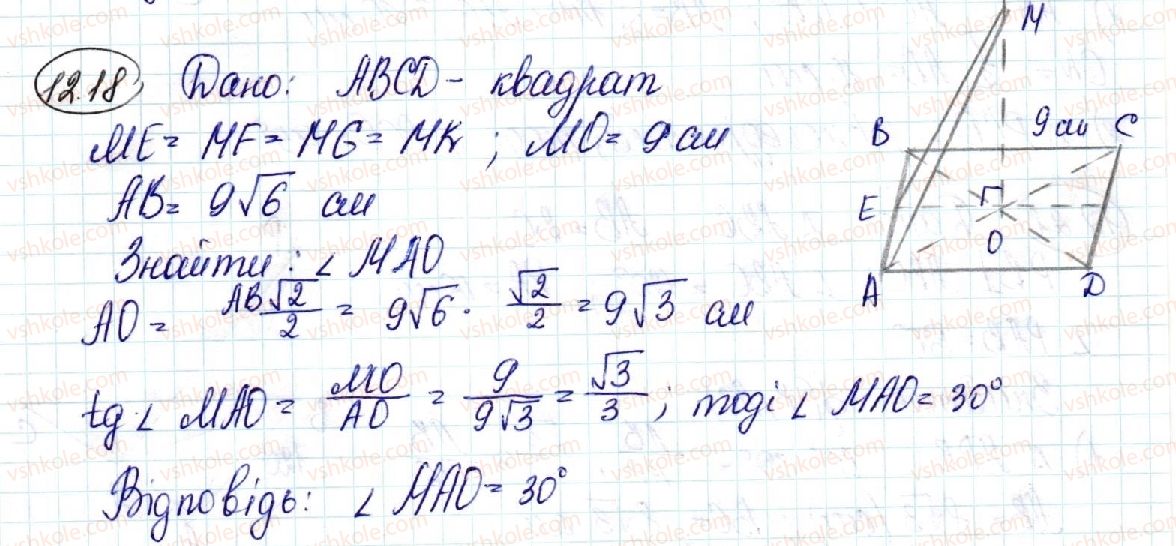 12.18 Дано: ABCD - квадрат
ME = MF = MG = MK ; MO = 9 см
AB = 9√6 см
Знайти: ∠ MAO
AO = AB√2/2 = 9√6 · √2/2 = 9√3 см
tg ∠ MAO = MO/AO = 9/9√3 = √3/3 ; тоді ∠ MAO = 30°
Відповідь: ∠ MAO = 30°
M
B
9 см
C
E
O
A
D
vshkole.com